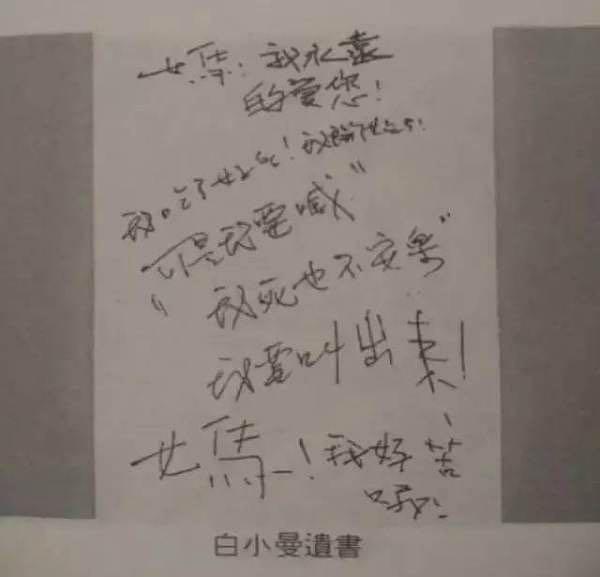 媽！我永遠
的愛您！
我吃了好多！我
"可是我要喊"
"我死也不安樂"
我要叫出來！
媽！我好苦
呀！
白小曼遺書